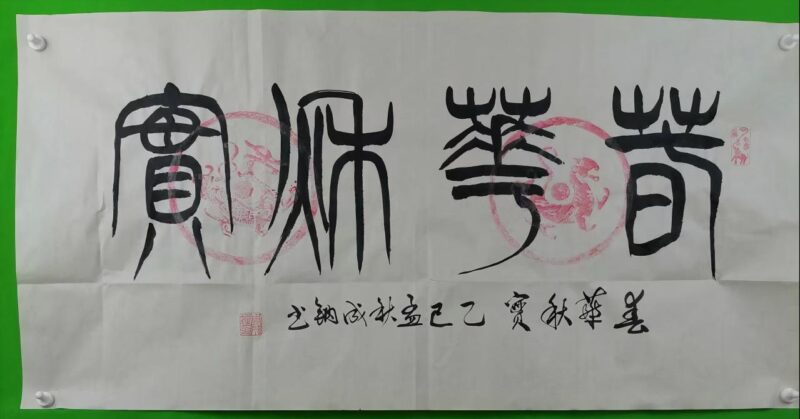 春華秋實
春華秋實 乙巳孟秋成鈉书